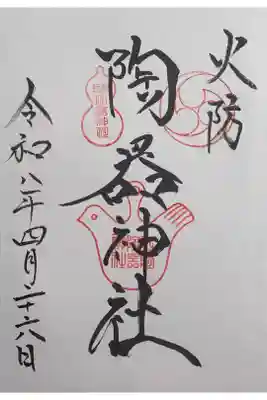 火防
陶器神社
令和八年四月二十六日